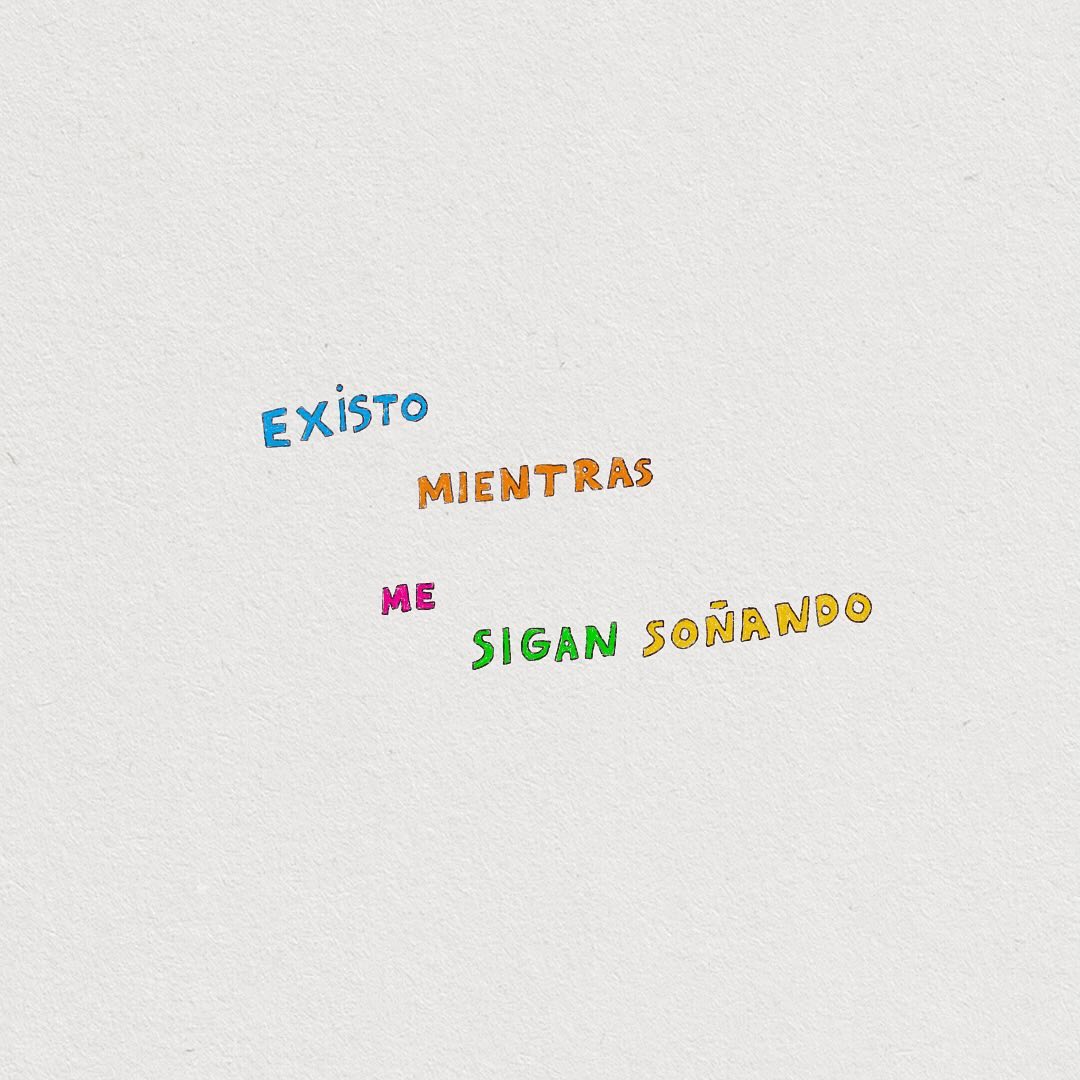 EXiSTO
MIENTRAS
ME
SIGAN SOÑANDO